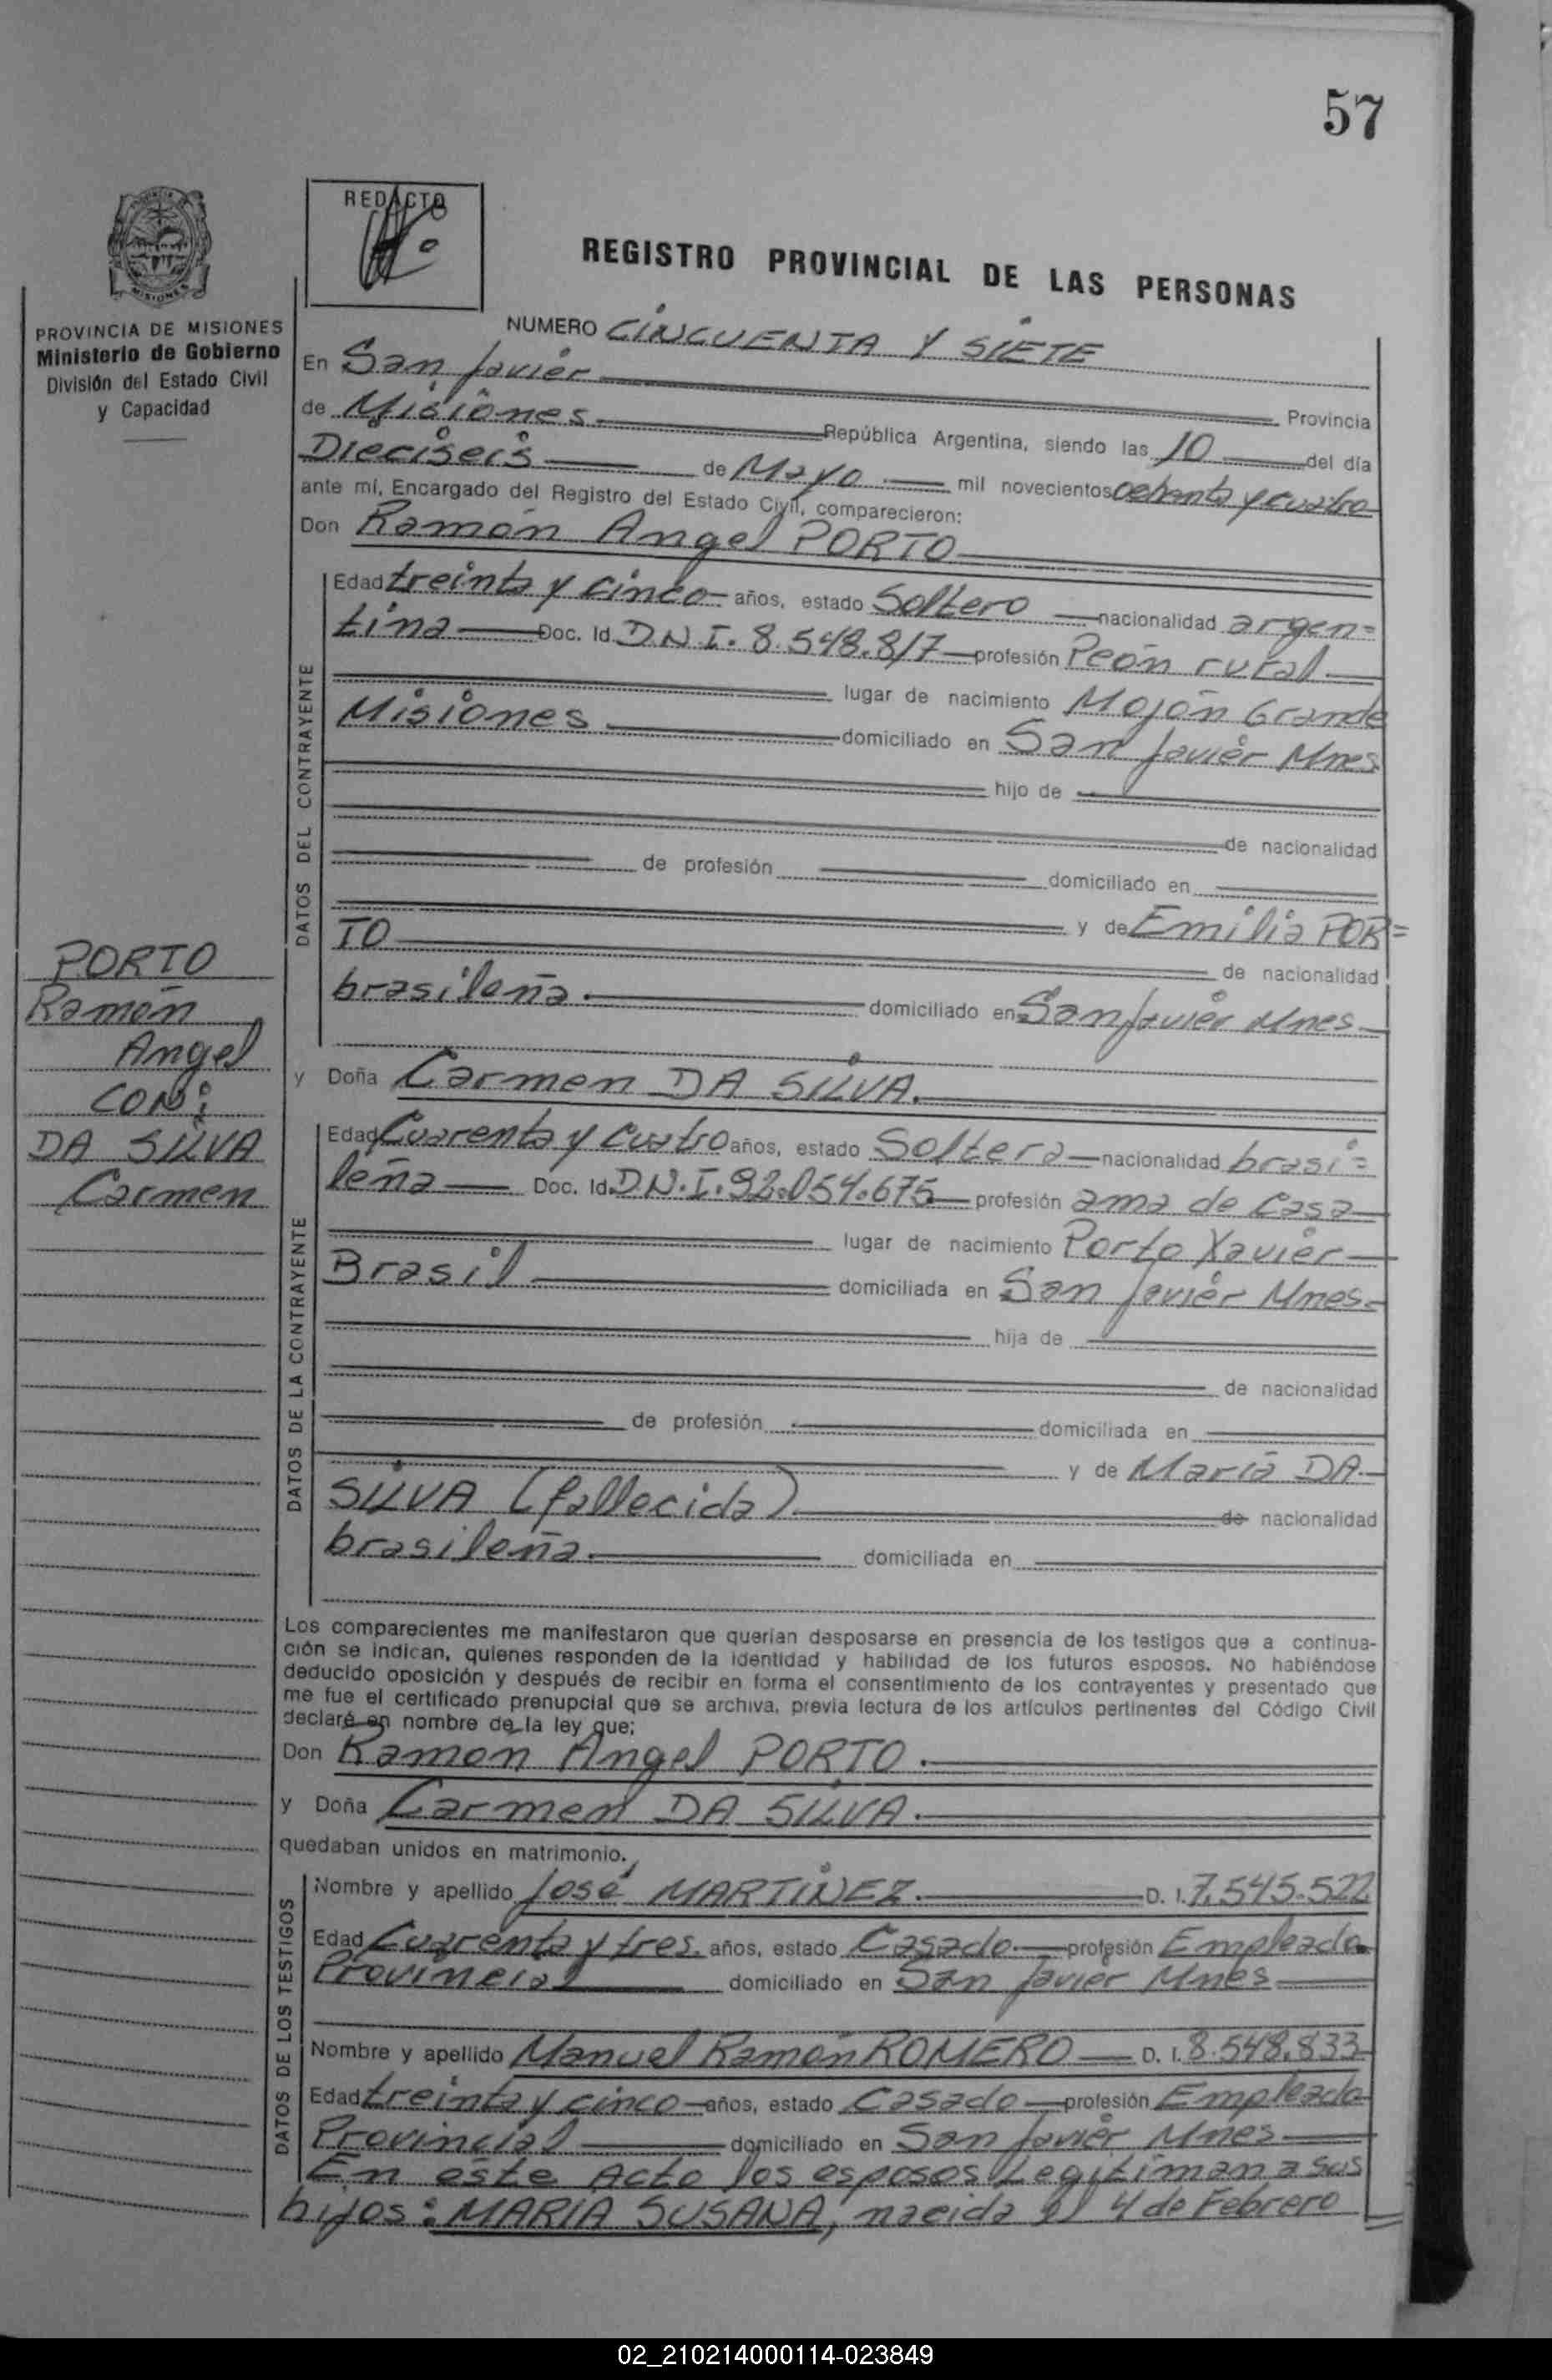 57
REDACTO
REGISTRO PROVINCIAL DE LAS PERSONAS
MISIONES
PROVINCIA DE MISIONES
Ministerio de Gobierno
División del Estado Civil
y Capacidad
NUMERO CINCUENTA Y SIETE
En San Javier Provincia
de Misiones República Argentina, siendo las 10 del día
Dieciseis de Mayo mil novecientos ochenta y cuatro
ante mí, Encargado del Registro del Estado Civil, comparecieron:
Don Ramón Angel PORTO
DATOS DEL CONTRAYENTE
Edad treinta y cinco años, estado Soltero nacionalidad argen=
tina Doc. Id. D.N.I. 8.548.817 profesión Peón rural
lugar de nacimiento Mojón Grande
Misiones domiciliado en San Javier Mnes
hijo de
de nacionalidad
de profesión domiciliado en
y de Emilia POR=
TO de nacionalidad
brasileña. domiciliado en San Javier Mnes
PORTO
Ramón
Angel
CON:
DA SILVA
Carmen
y Doña Carmen DA SILVA.
DATOS DE LA CONTRAYENTE
Edad Cuarenta y cuatro años, estado Soltera nacionalidad brasi=
leña Doc. Id. D.N.I. 92.054.675 profesión ama de casa
lugar de nacimiento Porto Xavier
Brasil domiciliada en San Javier Mnes.
hija de
de nacionalidad
de profesión domiciliada en
y de María DA
SILVA (fallecida) de nacionalidad
brasileña. domiciliada en
Los comparecientes me manifestaron que querían desposarse en presencia de los testigos que a continua-
ción se indican, quienes responden de la identidad y habilidad de los futuros esposos. No habiéndose
deducido oposición y después de recibir en forma el consentimiento de los contrayentes y presentado que
me fue el certificado prenupcial que se archiva, previa lectura de los artículos pertinentes del Código Civil
declaré en nombre de la ley que:
Don Ramon Angel PORTO.
y Doña Carmen DA SILVA.
quedaban unidos en matrimonio.
DATOS DE LOS TESTIGOS
Nombre y apellido José MARTINEZ. D. I. 7.545.522
Edad Cuarenta y tres. años, estado Casado profesión Empleado
Provincial domiciliado en San Javier Mnes
Nombre y apellido Manuel Ramón ROMERO D. I. 8.548.833
Edad treinta y cinco años, estado Casado profesión Empleado
Provincial domiciliado en San Javier Mnes
En este Acto los esposos Legitiman a sus
hijos: MARIA SUSANA, nacida el 4 de Febrero
02_210214000114-023849